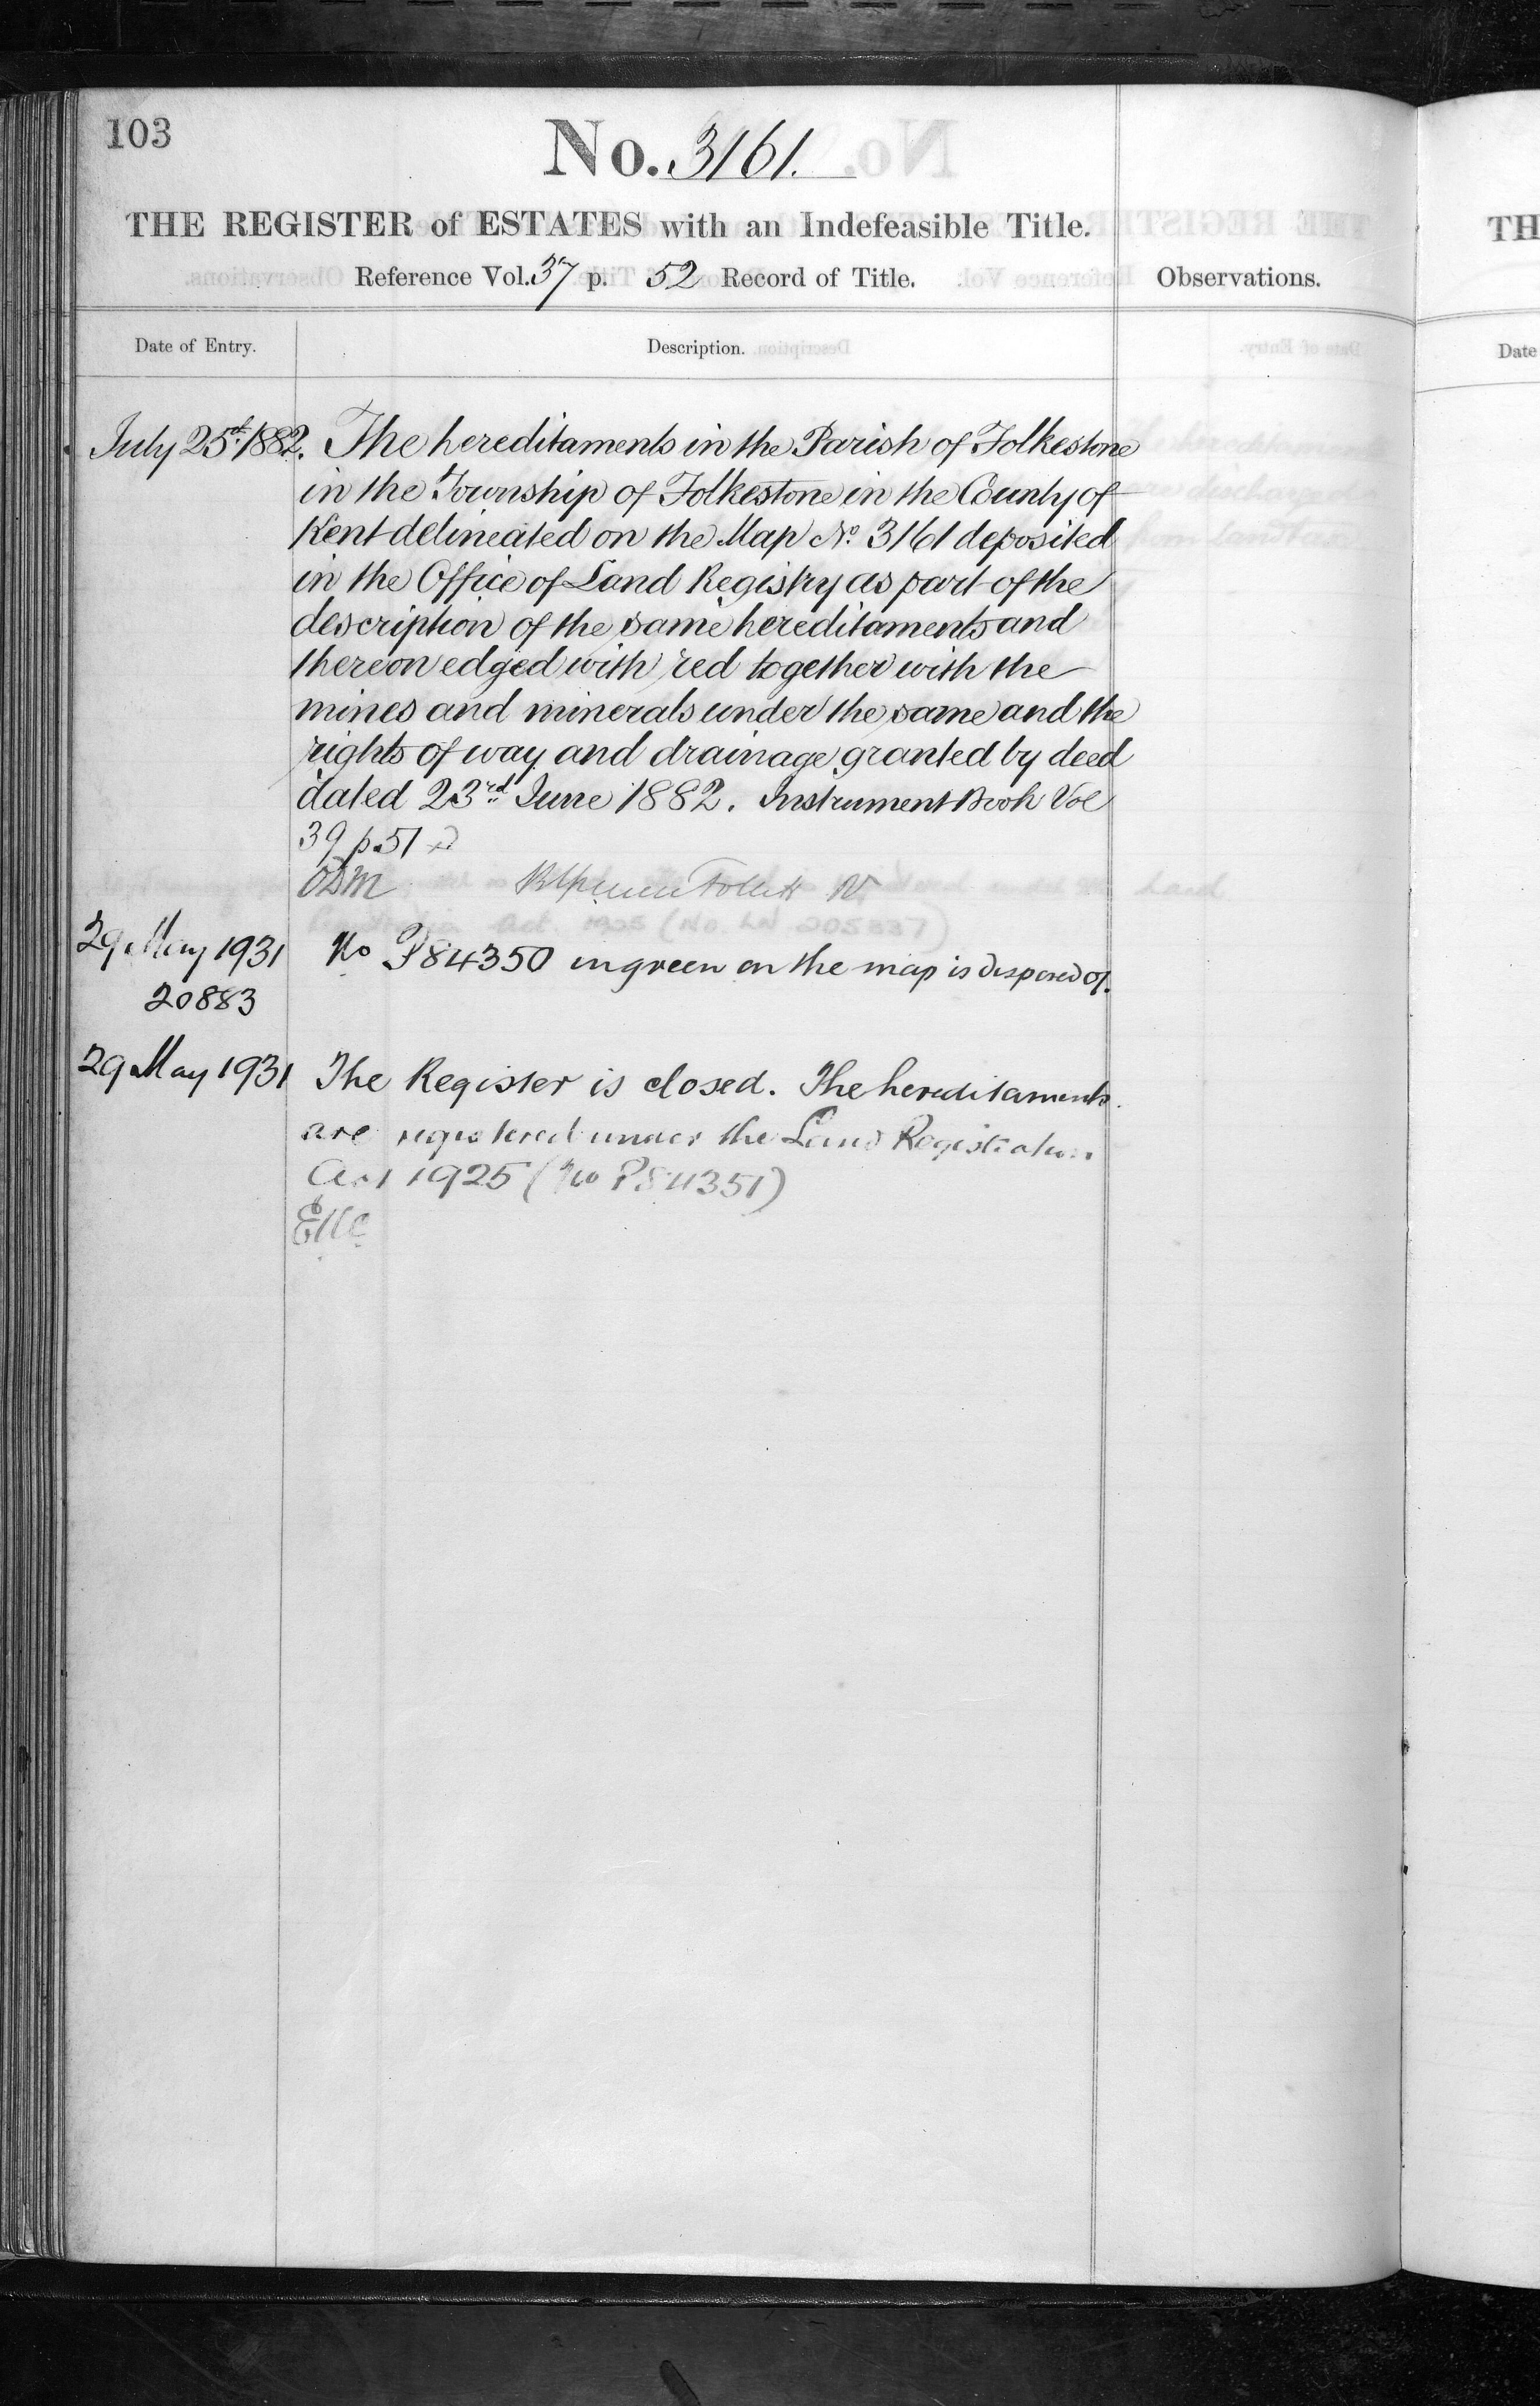 103
No. 3161.
THE REGISTER of ESTATES with an Indefeasible Title.
Reference Vol. 37 p. 52 Record of Title.
Observations.
Date of Entry.
Description.
July 25th 1882. The hereditaments in the Parish of Folkestone
in the Township of Folkestone in the County of
Kent delineated on the Map No. 3161 deposited
in the Office of Land Registry as part of the
description of the same hereditaments and
thereon edged with red together with the
mines and minerals under the same and the
rights of way and drainage granted by deed
dated 23rd June 1882. Instrument Book Vol
39 p.51
29 May 1931 No P84350 in green on the map is disposed of.
20883
29 May 1931 The Register is closed. The hereditaments
are registered under the Land Registration
Act 1925 (No P84351)
TH
Date